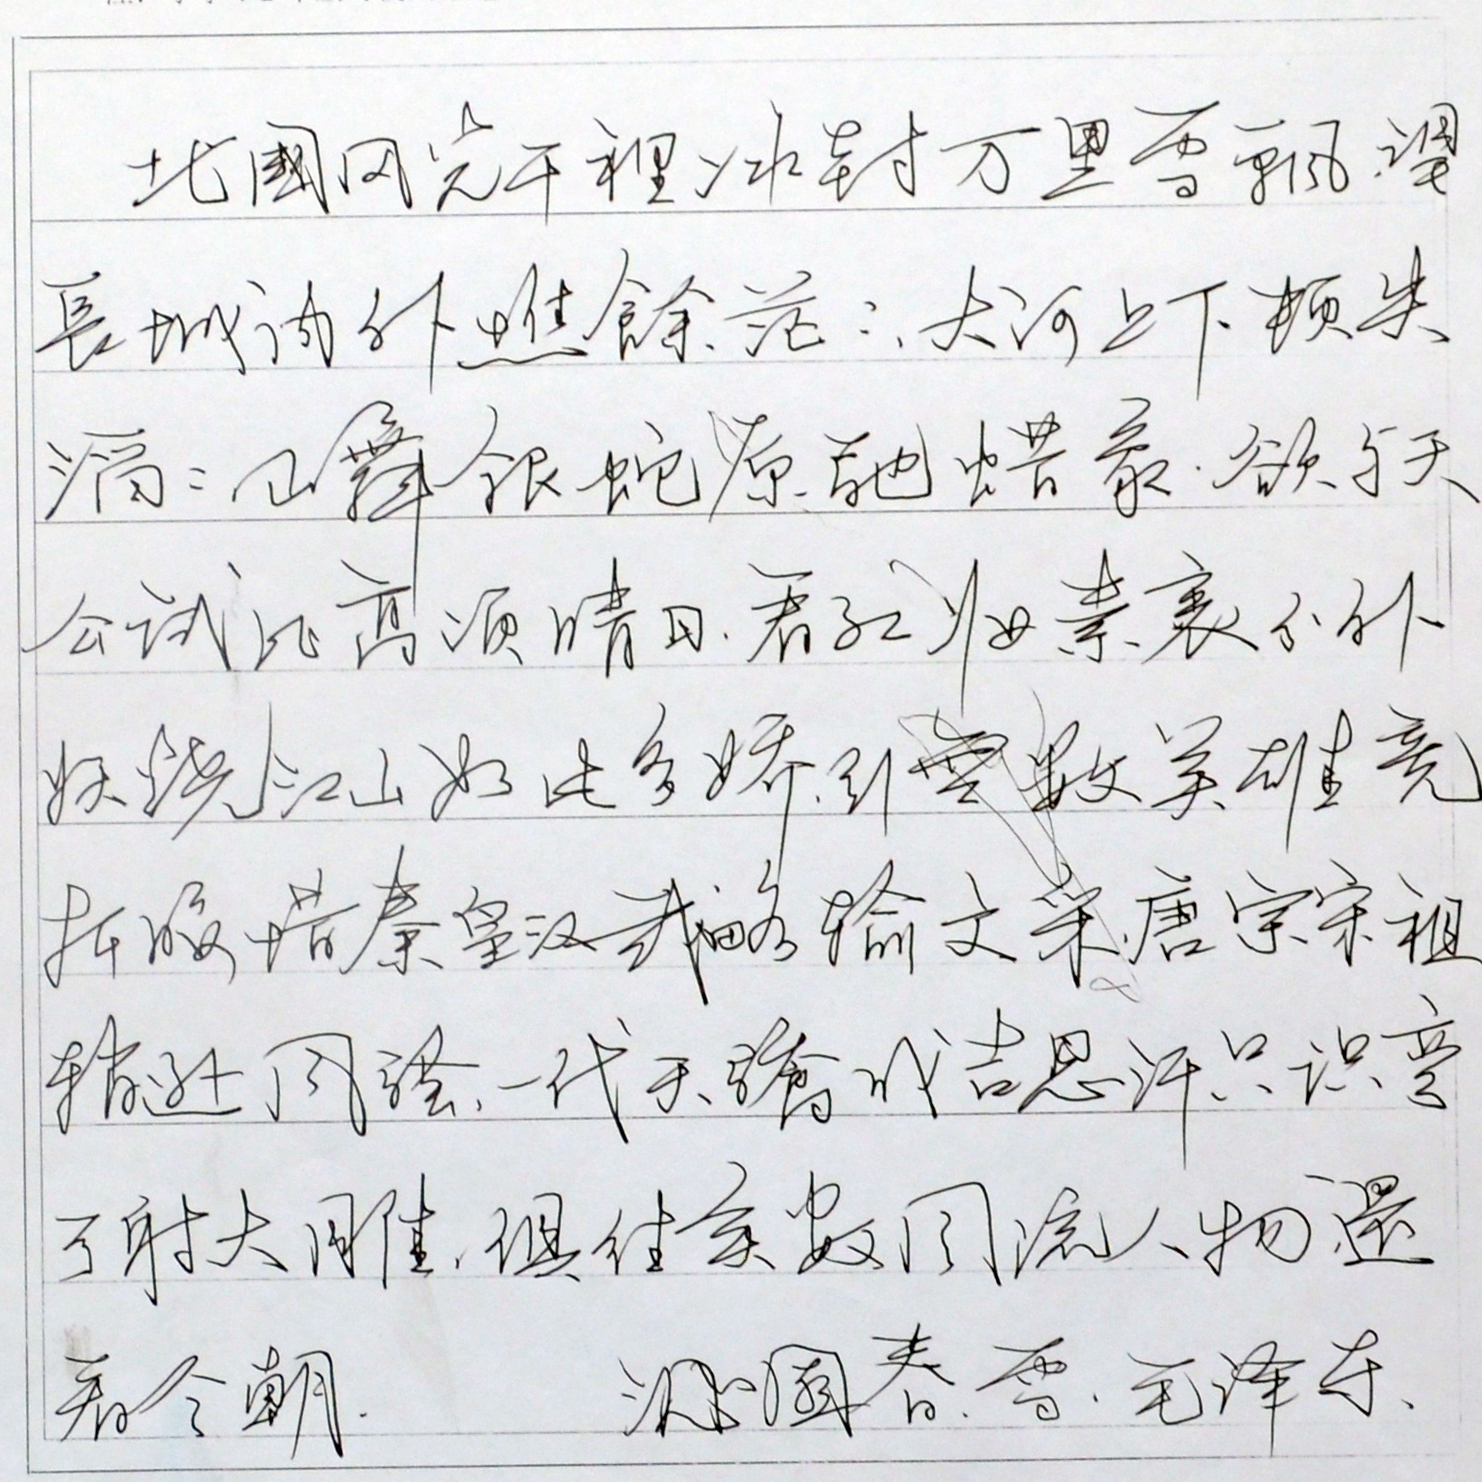 北國风光千裡冰封万里雪飘望
長城内外惟餘茫:大河上下顿失
滔:山舞银蛇原驰蜡象欲与天
公试比高须晴日看红妆素裹分外
妖娆江山如此多娇引無数英雄竞
折腰惜秦皇汉武略输文采唐宗宋祖
稍逊风骚一代天骄成吉思汗只识弯
弓射大雕俱往矣数风流人物還
看今朝 沁園春雪毛泽东